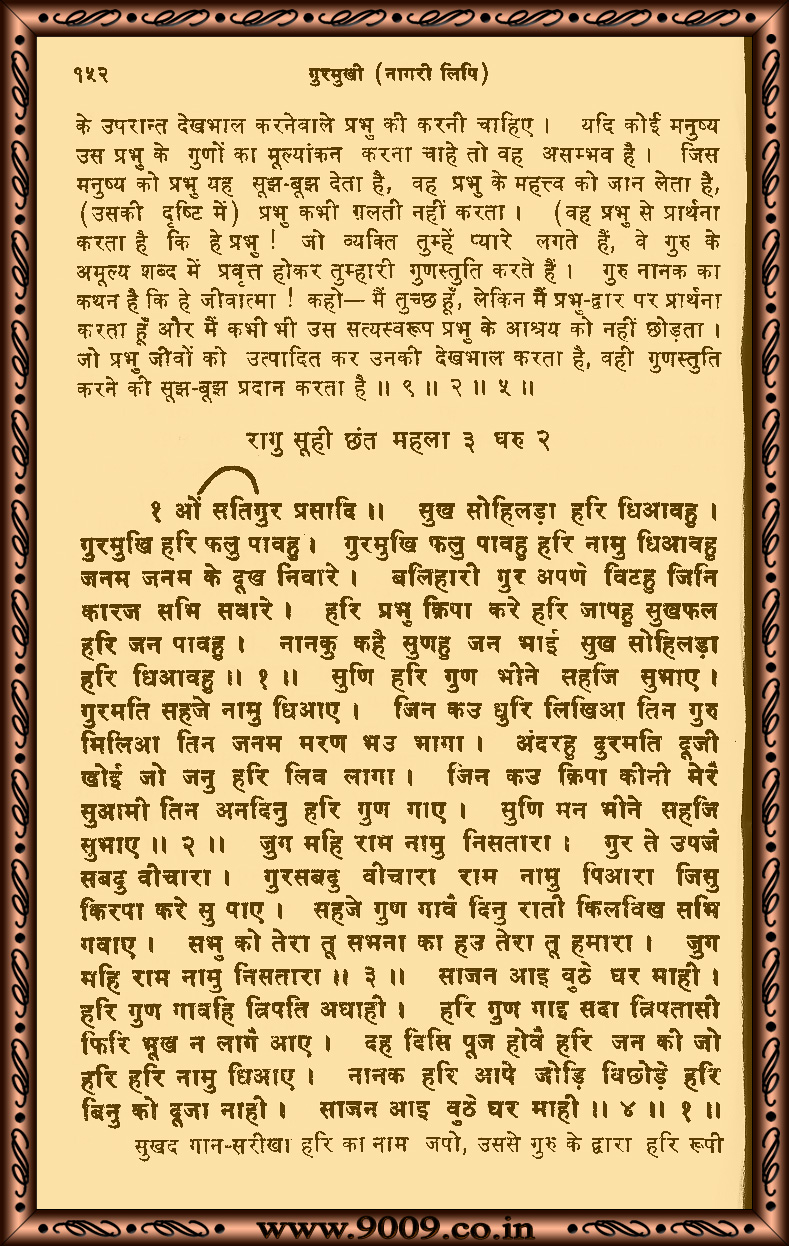 १५२ गुरमुखी (नागरी लिपि)
के उपरान्त देखभाल करनेवाले प्रभु को करनी चाहिए । यदि कोई मनुष्य
उस प्रभु के गुणों का मूल्यांकन करना चाहे तो वह असम्भव है । जिस
मनुष्य को प्रभु यह सूझ-बूझ देता है, वह प्रभु के महत्त्व को जान लेता है,
(उसकी दृष्टि में) प्रभु कभी ग़लती नहीं करता । (वह प्रभु से प्रार्थना
करता है कि हे प्रभु ! जो व्यक्ति तुम्हें प्यारे लगते हैं, वे गुरु के
अमूल्य शब्द में प्रवृत्त होकर तुम्हारी गुणस्तुति करते हैं । गुरु नानक का
कथन है कि हे जीवात्मा ! कहो— मैं तुच्छ हूँ, लेकिन मैं प्रभु-द्वार पर प्रार्थना
करता हूँ और मैं कभी भी उस सत्यस्वरूप प्रभु के आश्रय को नहीं छोड़ता ।
जो प्रभु जीवों को उत्पादित कर उनकी देखभाल करता है, वही गुणस्तुति
करने की सूझ-बूझ प्रदान करता है ॥ ९ ॥ २ ॥ ५ ॥
रागु सूही छंत महला ३ घरु २
१ ओं सतिगुर प्रसादि ॥ सुख सोहिलड़ा हरि धिआवहु ।
गुरमुखि हरि फलु पावहु । गुरमुखि फलु पावहु हरि नामु धिआवहु
जनम जनम के दूख निवारे । बलिहारी गुर अपणे विटहु जिनि
कारज सभि सवारे । हरि प्रभु क्रिपा करे हरि जापहु सुखफल
हरि जन पावहु । नानकु कहै सुणहु जन भाई सुख सोहिलड़ा
हरि धिआवहु ॥ १ ॥ सुणि हरि गुण भीने सहजि सुभाए ।
गुरमति सहजे नामु धिआए । जिन कउ धुरि लिखिआ तिन गुरु
मिलिआ तिन जनम मरण भउ भागा । अंदरहु दुरमति दूजी
खोई जो जनु हरि लिव लागा । जिन कउ क्रिपा कीनी मेरै
सुआमी तिन अनदिनु हरि गुण गाए । सुणि मन भीने सहजि
सुभाए ॥ २ ॥ जुग महि राम नामु निसतारा । गुर ते उपजै
सबदु वीचारा । गुरसबदु वीचारा राम नामु पिआरा जिसु
किरपा करे सु पाए । सहजे गुण गावै दिनु राती किलविख सभि
गवाए । सभु को तेरा तू सभना का हउ तेरा तू हमारा । जुग
महि राम नामु निसतारा ॥ ३ ॥ साजन आइ वुठे घर माही ।
हरि गुण गावहि त्रिपति अघाही । हरि गुण गाइ सदा त्रिपतासी
फिरि भूख न लागै आए । दह दिसि पूज होवै हरि जन की जो
हरि हरि नामु धिआए । नानक हरि आपे जोड़ि विछोड़े हरि
बिनु को दूजा नाही । साजन आइ वुठे घर माही ॥ ४ ॥ १ ॥
सुखद गान-सरीखा हरि का नाम जपो, उससे गुरु के द्वारा हरि रूपी
www.9009.co.in